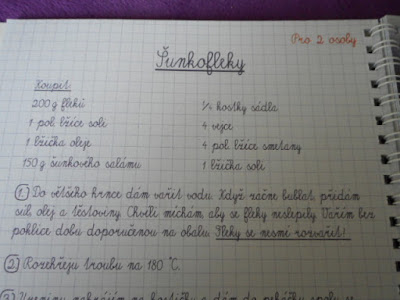 Pro 2 osoby
Šunkofleky
Koupit
200 g fleků
1 pol. lžíce soli
1 lžička oleje
150 g šunkového salámu
1/4 kostky sádla
4 vejce
4 pol. lžíce smetany
1 lžička soli
1. Do většího hrnce dám vařit vodu. Když začne bublat, přidám
sůl, olej a těstoviny. Chvíli míchám, aby se fleky neslepily. Vařím bez
pokličce dobu doporučenou na obalu. Fleky se nesmí rozvařit!
2. Rozehřeju troubu na 180 °C.
3. Uzeninu nakrájím na kostičky a dám do